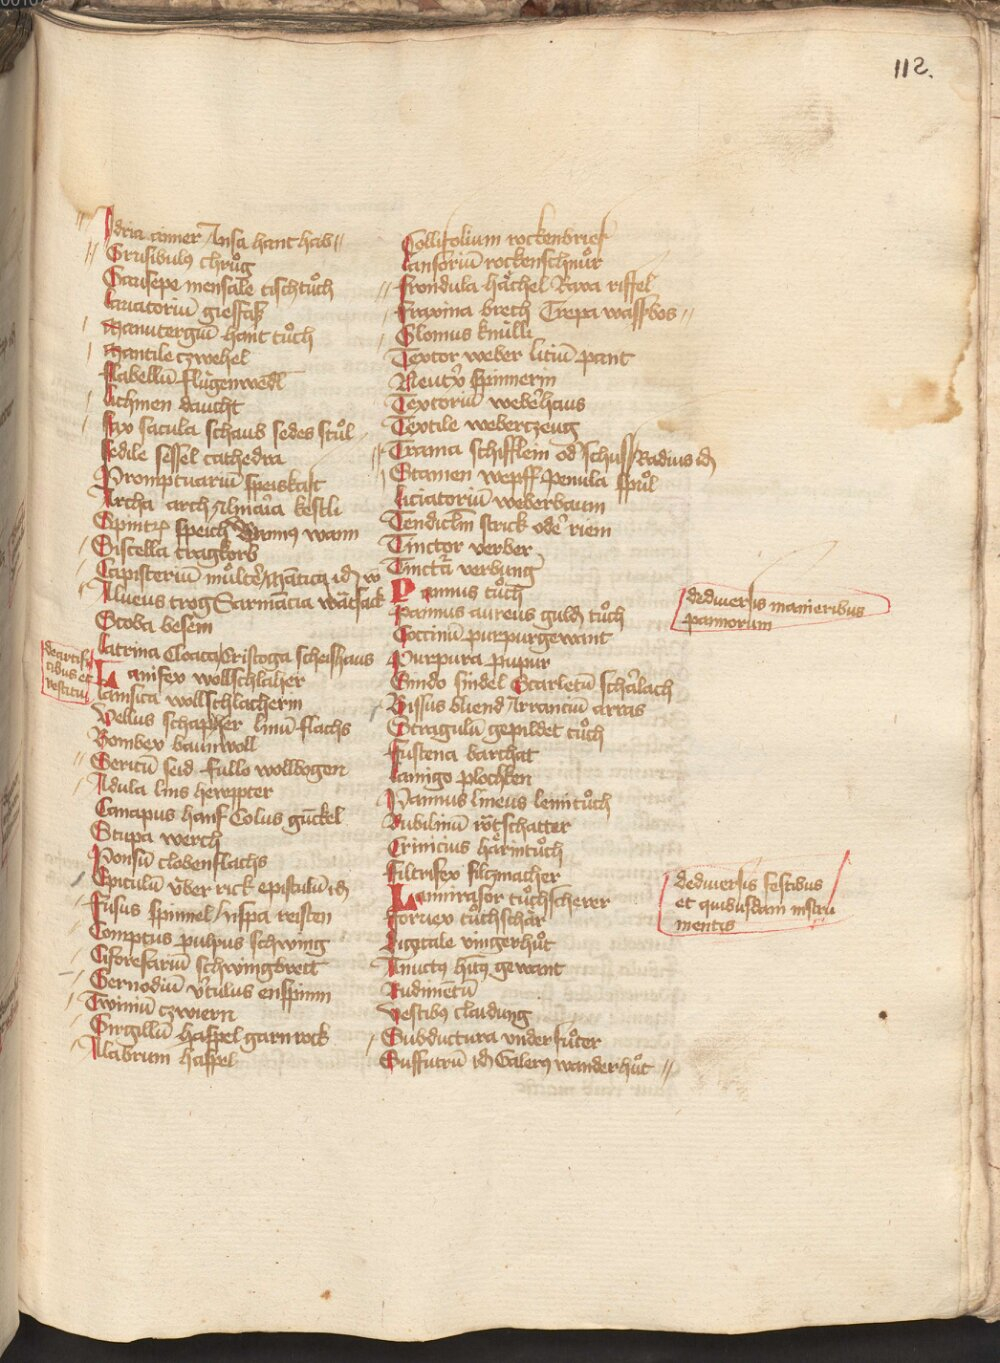 112.
Idria aimer Ansa hanthab
Crusibulus chruͦg
Gausepe mensale tischtuͦch
Lauatoriū giesfasz
Manutergiū hant tuͦch
Mantile czwehel
flabellū flůgenwedl
lichmen daucht
Stax facula schaub sedes stuͦl
Sedile sessel cathedra
Promptuariū speiskast
Archa arch Almaria kestli
speich wann
Discella tragkorb
Capisteriū muͦlter Mantica idem
Alueus trog Sarmācia watsack
Scoba besem
Latrina Cloaca Cristoga scheishaus
de artifi
cibus et
vestitu
Lanifex wollschlaher
Lanifica wollschlacherin
Vellus schapher linū flachs
Bombex baumwoll
Sericū seid fullo wollbogen
Adula lins herppter
Canapus hanf Colus gunckel
Stupa werch
Ponsū clobenflachs
Epiculū vber rick epistulū idem
Fusus spinnel hispa reisten
Comptus pulpus schwing
Ciforesariū schwingbrett
Gernodiū v'tculus enspinn
Twiniū czwiern
Girgillū haspel garnrock
Alabrum haspel
Collifolium rockenbrief
Lansoriū rockenschnuͦr
frondula hächel Rapa riffel
fraxina brech Trepa wasskbos
Glomus knulli
Textor weber liciū pant
Neutrx spinnerin
Textoriū weberhaus
Textile weberczeug
Trama schifflein oder schuss Radius idem
Stamen wepff Penula spuͦl
liciatoriū weberbaum
Tendiclm strick oder riem
Tinctor verber
Tinctra verbung
Pannus tuͦch
Pannus aureus guldn tuͦch
Coccinū purpurgewant
Purpura pupur
Sindo sindel Scarletū scharlach
Bissus bliend Arranciū arras
Stragulū gepildet tuͦch
fustena barchat
lanigo plochken
Pannus lineus leinituͦch
Bubilinū rötschatter
Crinicius härintuͦch
filtrifex filczmacher
Lannirasor tuͦchscherer
forvex tuͦchschär
Digitale vingerhuͦt
Amictus hituz gewant
Indumentū
Vestibus claidung
Subductura vnderfuͦter
Suffutrū idem Galerus wanderhuͦt
de diuersis manieribus
pannorum
de diuersis sestibus
et quibusdam instru
mentis